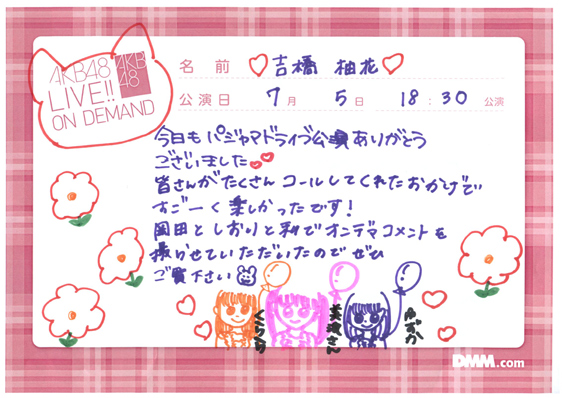 AKB48
LIVE!!
ON DEMAND
AKB
48
名前 ♡吉橋 柚花♡
公演日 7月 5日 18:30 公演
今日もパジャマドライブ公演ありがとう
ございました
皆さんがたくさんコールしてくれたおかげで
すごーく楽しかったです!
岡田としおりと私でオンデマコメントを
撮らせていただいたのでぜひ
ご覧下さい
さん
ゆずか
DMM.com